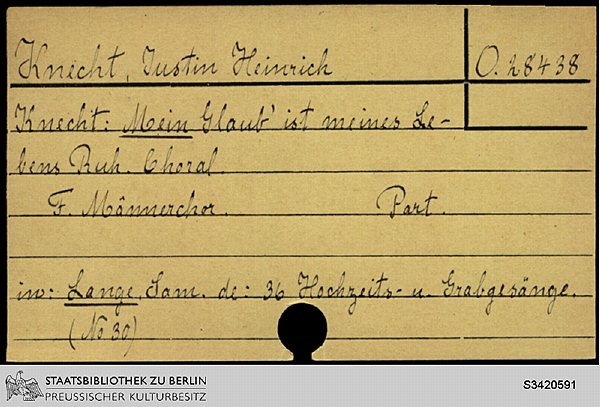 Knecht, Justin Heinrich
O. 28438
Knecht: Mein Glaub' ist meines Le-
bens Ruh. Choral.
F. Männerchor. Part.
in: Lange, Sam. de: 36 Hochzeits- u. Grabgesänge.
(No 30)
STAATSBIBLIOTHEK ZU BERLIN
PREUSSISCHER KULTURBESITZ
S3420591